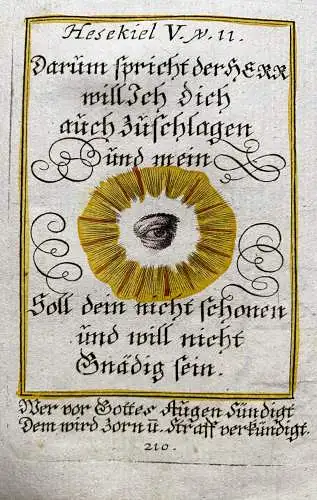 Hesekiel V. ℣. 11.
Darüm spricht der HERR
will Ich Dich
auch Züschlagen
ünd mein
Soll dein nicht schonen
ünd will nicht
Gnädig sein.
Wer vor Gottes Augen sündigt
Dem wird Zorn ü. Straff verkündigt.
210.